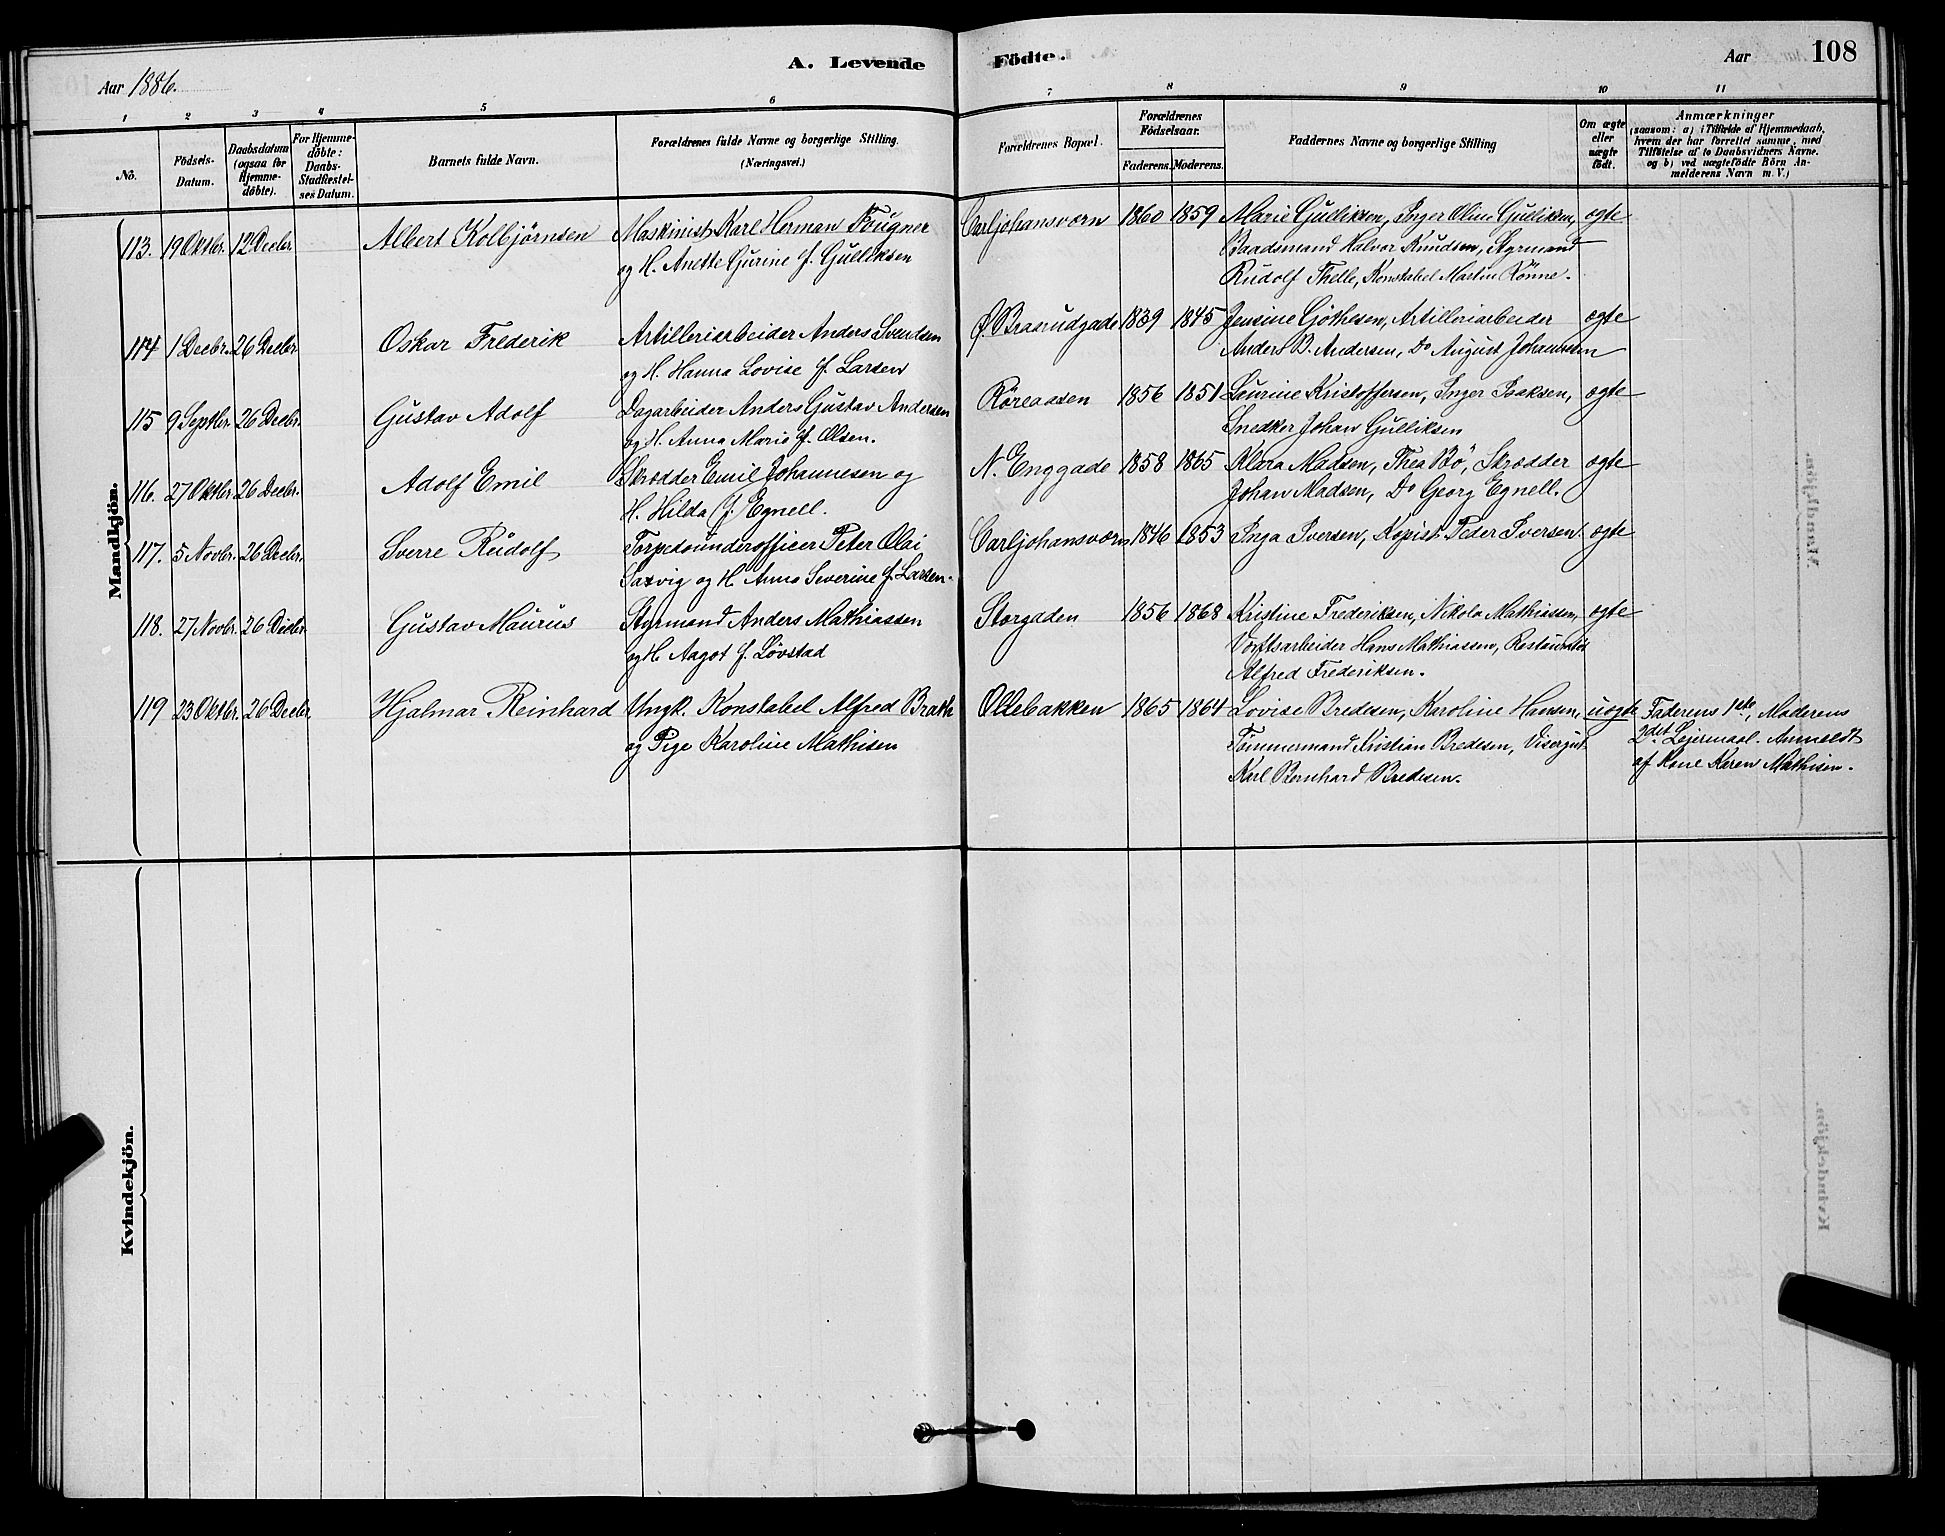 A. Levende Födte. Aar 108
Aar 1886.
1 2 3 4 5 6 7 8 9 10 11
No.
Födsels-
Datum.
Daabsdatum
(ogsaa for
Hjemme-
döbte).
For Hjemme-
döbte:
Daabs-
Stadfæstel-
ses Datum.
Barnets fulde Navn.
Forældrenes fulde Navne og borgerlige Stilling.
(Næringsvei.)
Forældrenes Bopæl.
Forældrenes
Födselsaar.
Faderens. Moderens.
Faddernes Navne og borgerlige Stilling
Om ægte
eller
uægte
födt.
Anmærkninger
(saasom: a) i Tilfælde af Hjemmedaab,
hvem der har forrettet samme, med
Tilföielse af to Daabsvidners Navne.
og b) ved uægtefödte Börn An-
melderens Navn m. V.)
Mandkjön.
113. 19 Oktbr. 12 Decbr. Albert Kolbjørnsen Maskinist Karl Herman Fougner Carljohansværn 1860 1859 Marie Gulliksen, Inger Oline Gulliksen, ægte
og H. Anette Gurine f. Gulliksen Baadsmand Halvor Knudsen, Styrmand
Rudolf Thelle, Konstabel Martin Rönne.
114 1 Decbr. 26 Decbr Oskar Frederik Artilleriarbeider Anders Svendsen Ø. Braarudgade 1839 1845 Jensine Göthesen, Artilleriarbeider ægte
og H. Hanna Lovise f. Larsen Anders B. Andersen, Do August Johannesen
115 9 Septbr 26 Decbr. Gustav Adolf Dagarbeider Anders Gustav Andersen Røreaasen 1856 1851 Laurine Kristoffersen, Inger Isaksen, ægte
og H. Anna Marie f. Olsen. Snedker Johan Gulliksen
116. 27 Oktbr 26 Decbr. Adolf Emil Skrædder Emil Johannesen og N. Enggade 1858 1865 Klara Madsen, Thea Bö, Skrædder ægte
H. Hilda f. Egnell. Johan Madsen, Do Georg Egnell.
117. 5 Novbr. 26 Decbr. Sverre Rudolf Torpedounderofficer Peter Olai Carljohansværn 1846 1853 Inga Iversen, Kopist Peder Iversen. ægte
Saxvig og H. Anna Severine f. Larsen.
118. 27 Novbr. 26 Decbr. Gustav Maurus Styrmand Anders Mathiassen Storgaden 1856 1868 Kristine Frederiksen, Nikola Mathiassen, ægte
og H. Aagot f. Løvstad Værftsarbeider Hans Mathiassen, Restauratør
Alfred Frederiksen.
119 23 Oktbr. 26 Decbr Hjalmar Reinhard Ungk. Konstabel Alfred Brath Ollebakken 1865 1864 Lovise Bredesen, Karoline Hansen, uægte Faderens 1ste, Moderens
og Pige Karoline Mathisen Tömmermand Kristian Bredesen, Visergut 2det Leiermaal. Anmeldt
Karl Bernhard Bredesen. af Kone Karen Mathisen.
Kvindekjön.